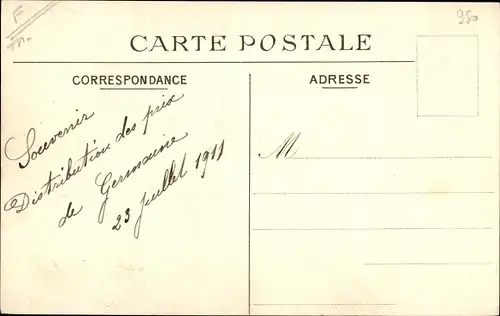 F
950
CARTE POSTALE
CORRESPONDANCE
ADRESSE
Souvenir
Distribution des prix
de Germaine
23 juillet 1911
M